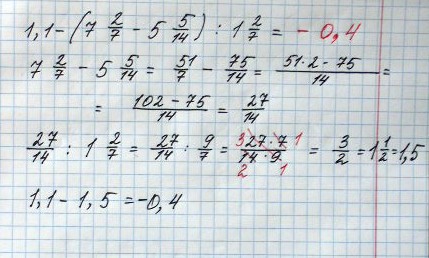 1,1-(7 2/7 - 5 5/14) : 1 2/7 = - 0,4
7 2/7 - 5 5/14 = 51/7 - 75/14 = (51·2-75)/14 =
= (102-75)/14 = 27/14
27/14 : 1 2/7 = 27/14 : 9/7 = 3 (27·7)/(14·9) 1 2 1 = 3/2 = 1 1/2 = 1,5
1,1-1,5=-0,4